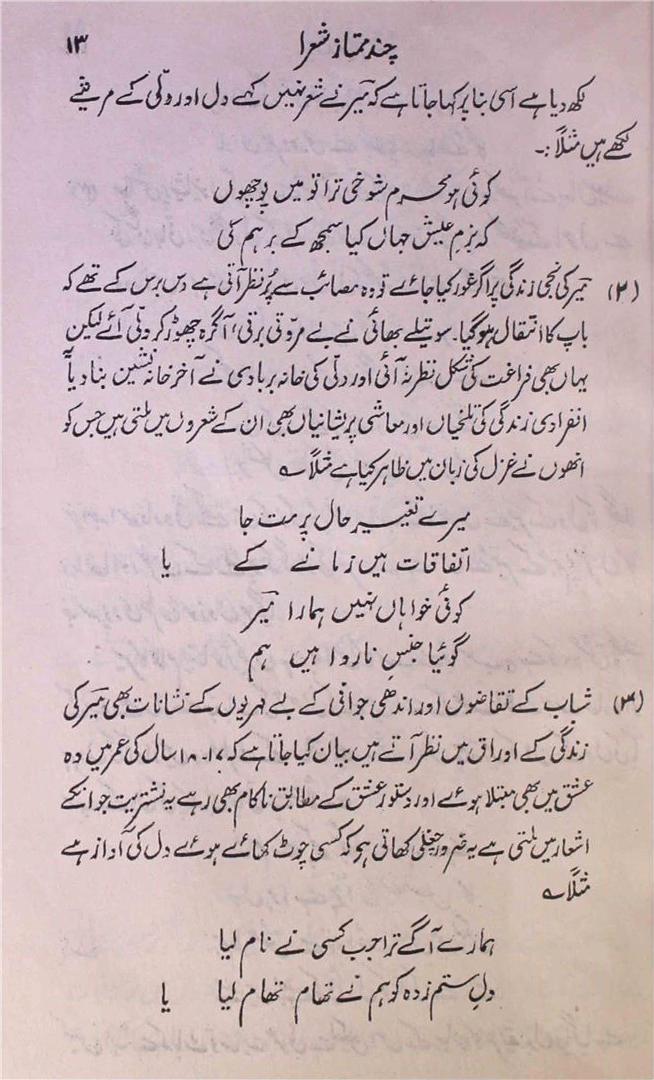 چند ممتاز شعرا ۱۳
لکھ دیا ہے اسی بنا پر کہا جاتا ہے کہ میرؔ نے شعر نہیں کہے دل اور دلّی کے مرثیے
لکھے ہیں مثلاً :۔
کوئی ہو محرم شوخی ترا تو میں پوچھوں
کہ بزمِ عیش جہاں کیا سمجھ کے برہم کی
(۲) میرؔ کی نجی زندگی پر اگر غور کیا جائے تو وہ مصائب سے پُر نظر آتی ہے دس برس کے تھے کہ
باپ کا انتقال ہو گیا۔ سوتیلے بھائی نے بے مروّتی برتی، آگرہ چھوڑ کر دلّی آئے لیکن
یہاں بھی فراغت کی شکل نظر نہ آئی اور دلّی کی خانہ بربادی نے آخر خانہ نشین بنا دیا
انفرادی زندگی کی تلخیاں اور معاشی پریشانیاں بھی ان کے شعروں میں ملتی ہیں جس کو
انھوں نے غزل کی زبان میں ظاہر کیا ہے مثلاً ؎
میرے تغییر حال پر مت جا
اتفاقات ہیں زمانے کے یا
کوئی خواہاں نہیں ہمارا میرؔ
گوئیا جنسِ ناروا ہیں ہم
(۳) شباب کے تقاضوں اور اندھی جوانی کے بے مہریوں کے نشانات بھی میرؔ کی
زندگی کے اوراق میں نظر آتے ہیں بیان کیا جاتا ہے کہ ۱۷۔۱۸ سال کی عمر میں وہ
عشق میں بھی مبتلا ہوئے اور دستور عشق کے مطابق ناکام بھی رہے یہ نشتریت جو انکے
اشعار میں ملتی ہے یہ ضرور چغلی کھاتی ہے کہ کسی چوٹ کھائے ہوئے دل کی آواز ہے
مثلاً ؎
ہمارے آگے ترا جب کسی نے نام لیا
دلِ ستم زدہ کو ہم نے تھام تھام لیا یا